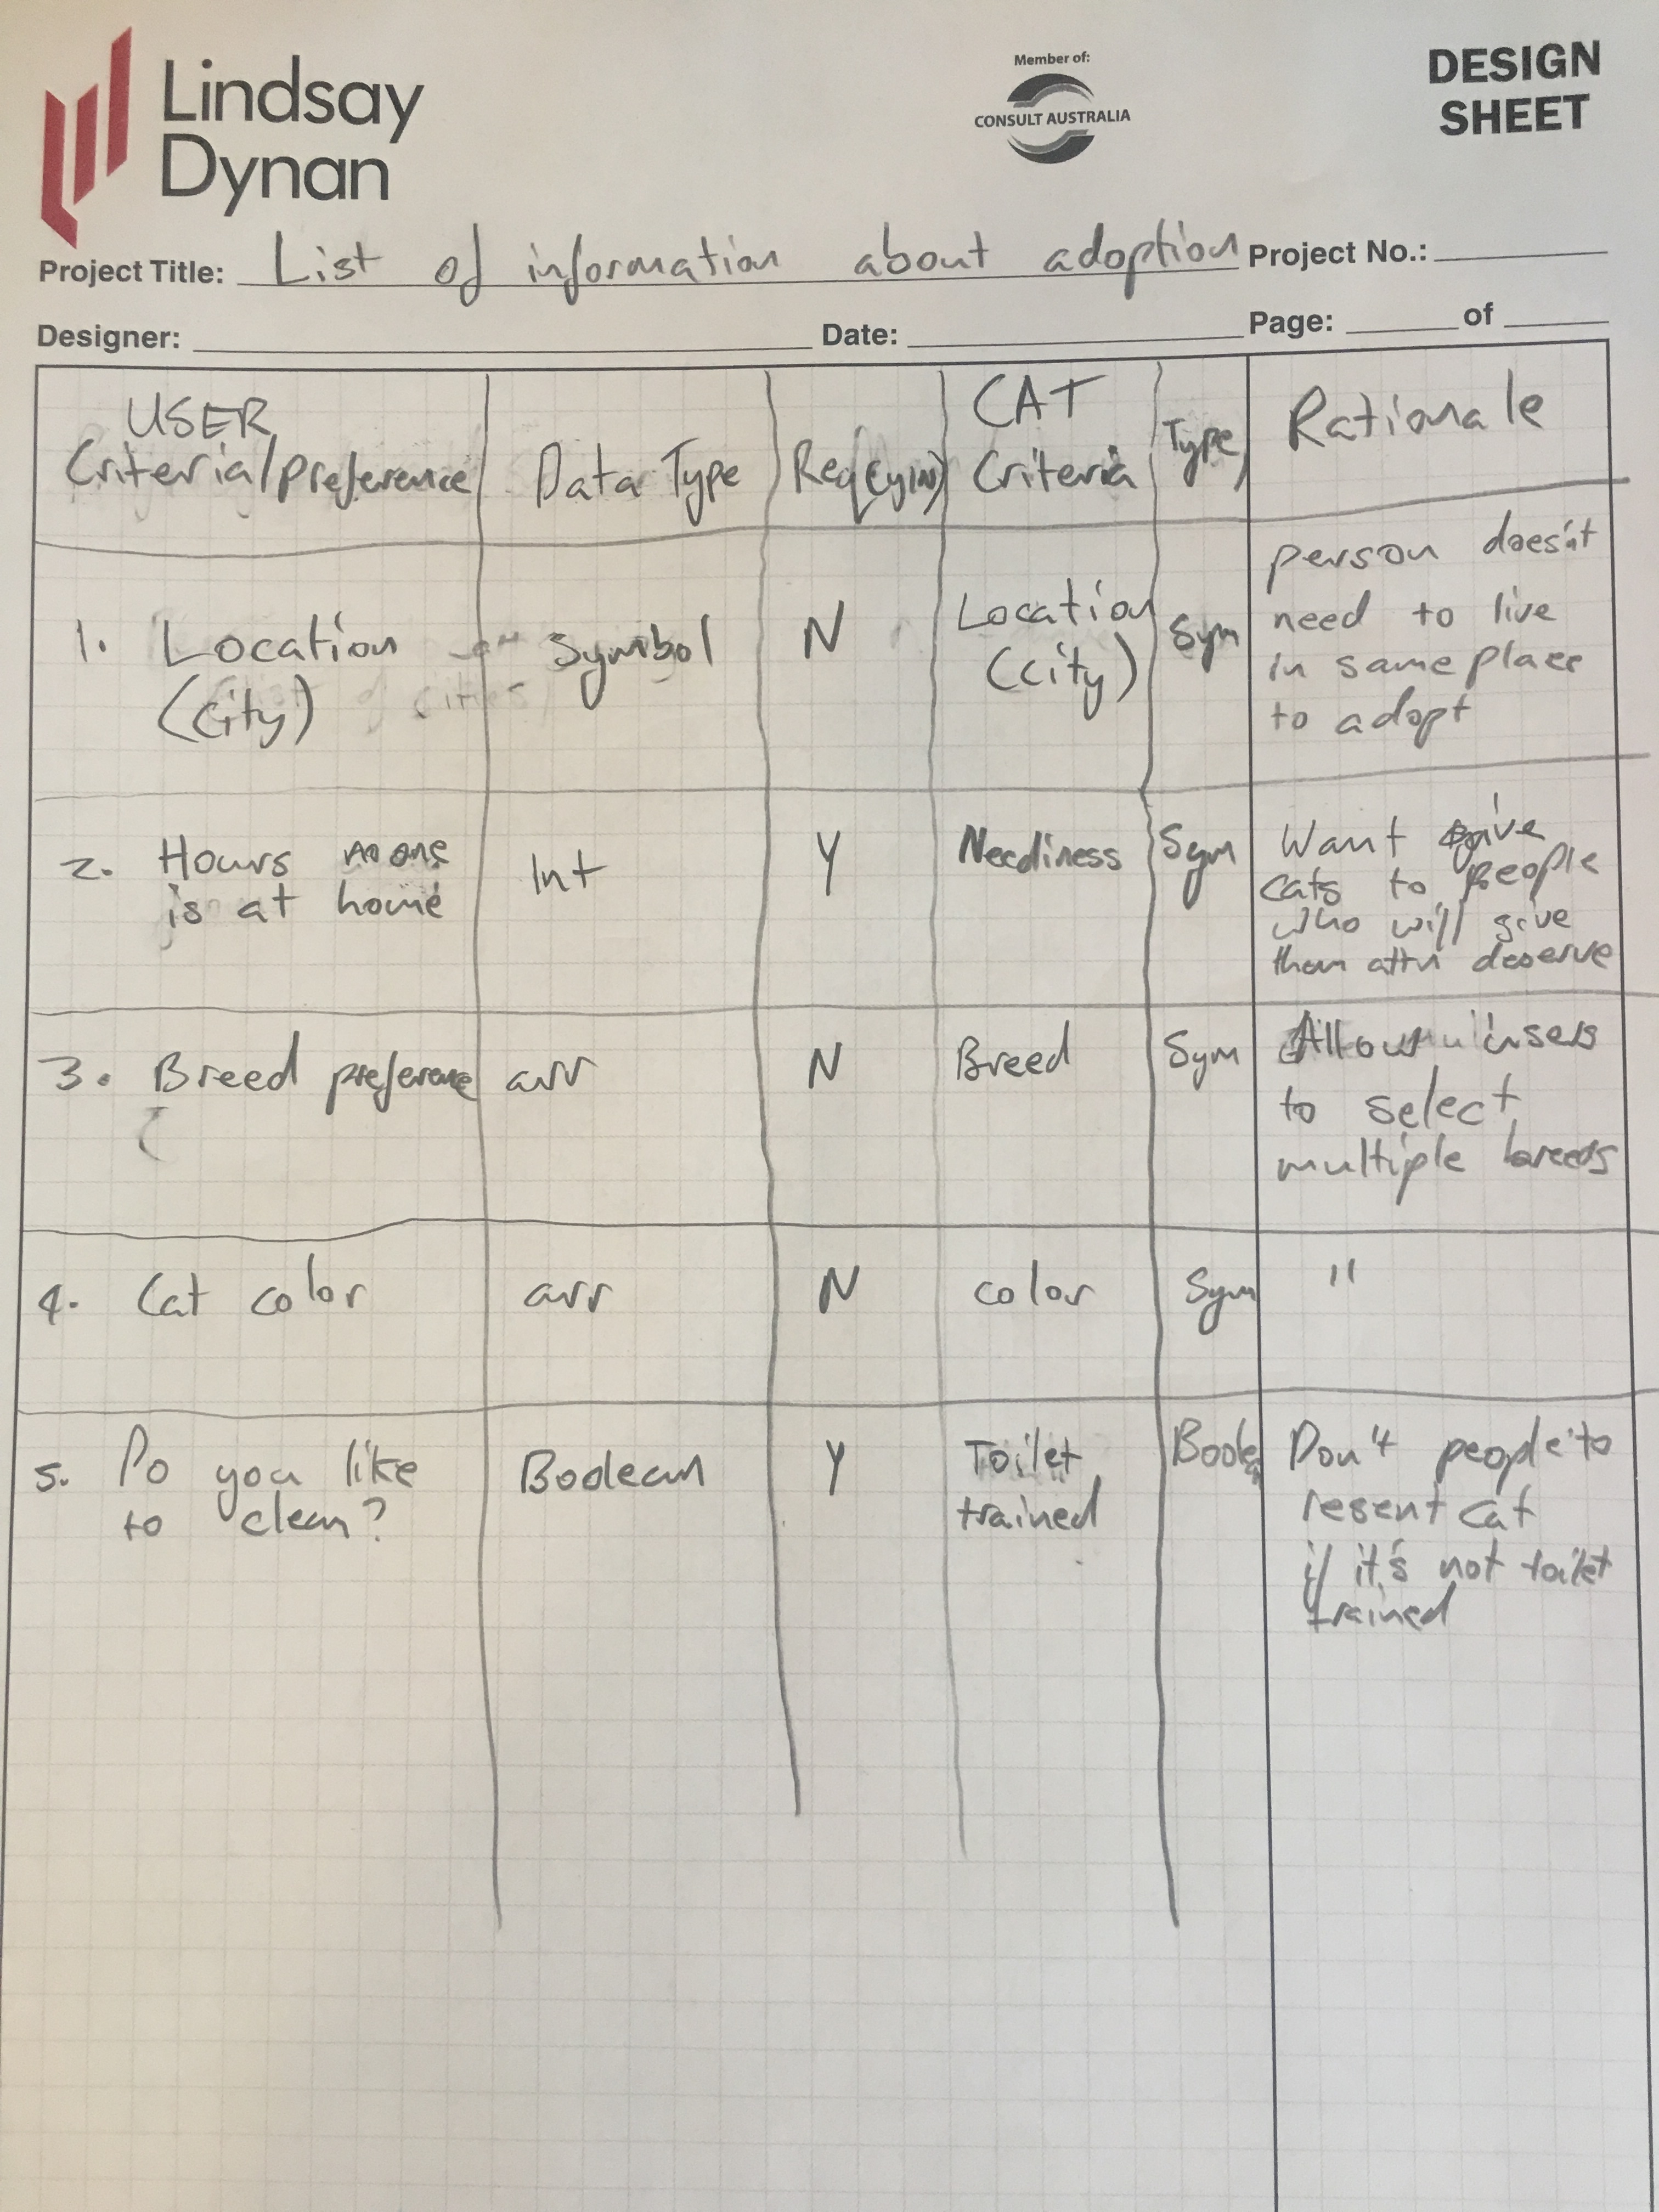 Lindsay
Dynan
Member of:
CONSULT AUSTRALIA
DESIGN
SHEET
Project Title: List of information about adoption Project No.:
Designer: Date: Page: of
USER
Criteria/preference
Data Type
Req(Y/N)
CAT
Criteria
Type
Rationale
1. Location
(city)
Symbol
N
Location
(city)
Sym
person doesn't
need to live
in same place
to adopt
2. Hours no one
is at home
Int
Y
Neediness
Sym
Want give
cats to people
who will give
them attn deserve
3. Breed preference
arr
N
Breed
Sym
Allow users
to select
multiple breeds
4. Cat color
arr
N
color
Sym
"
5. Do you like
to clean?
Boolean
Y
Toilet
trained
Boole
Don't people to
resent cat
if it's not toilet
trained